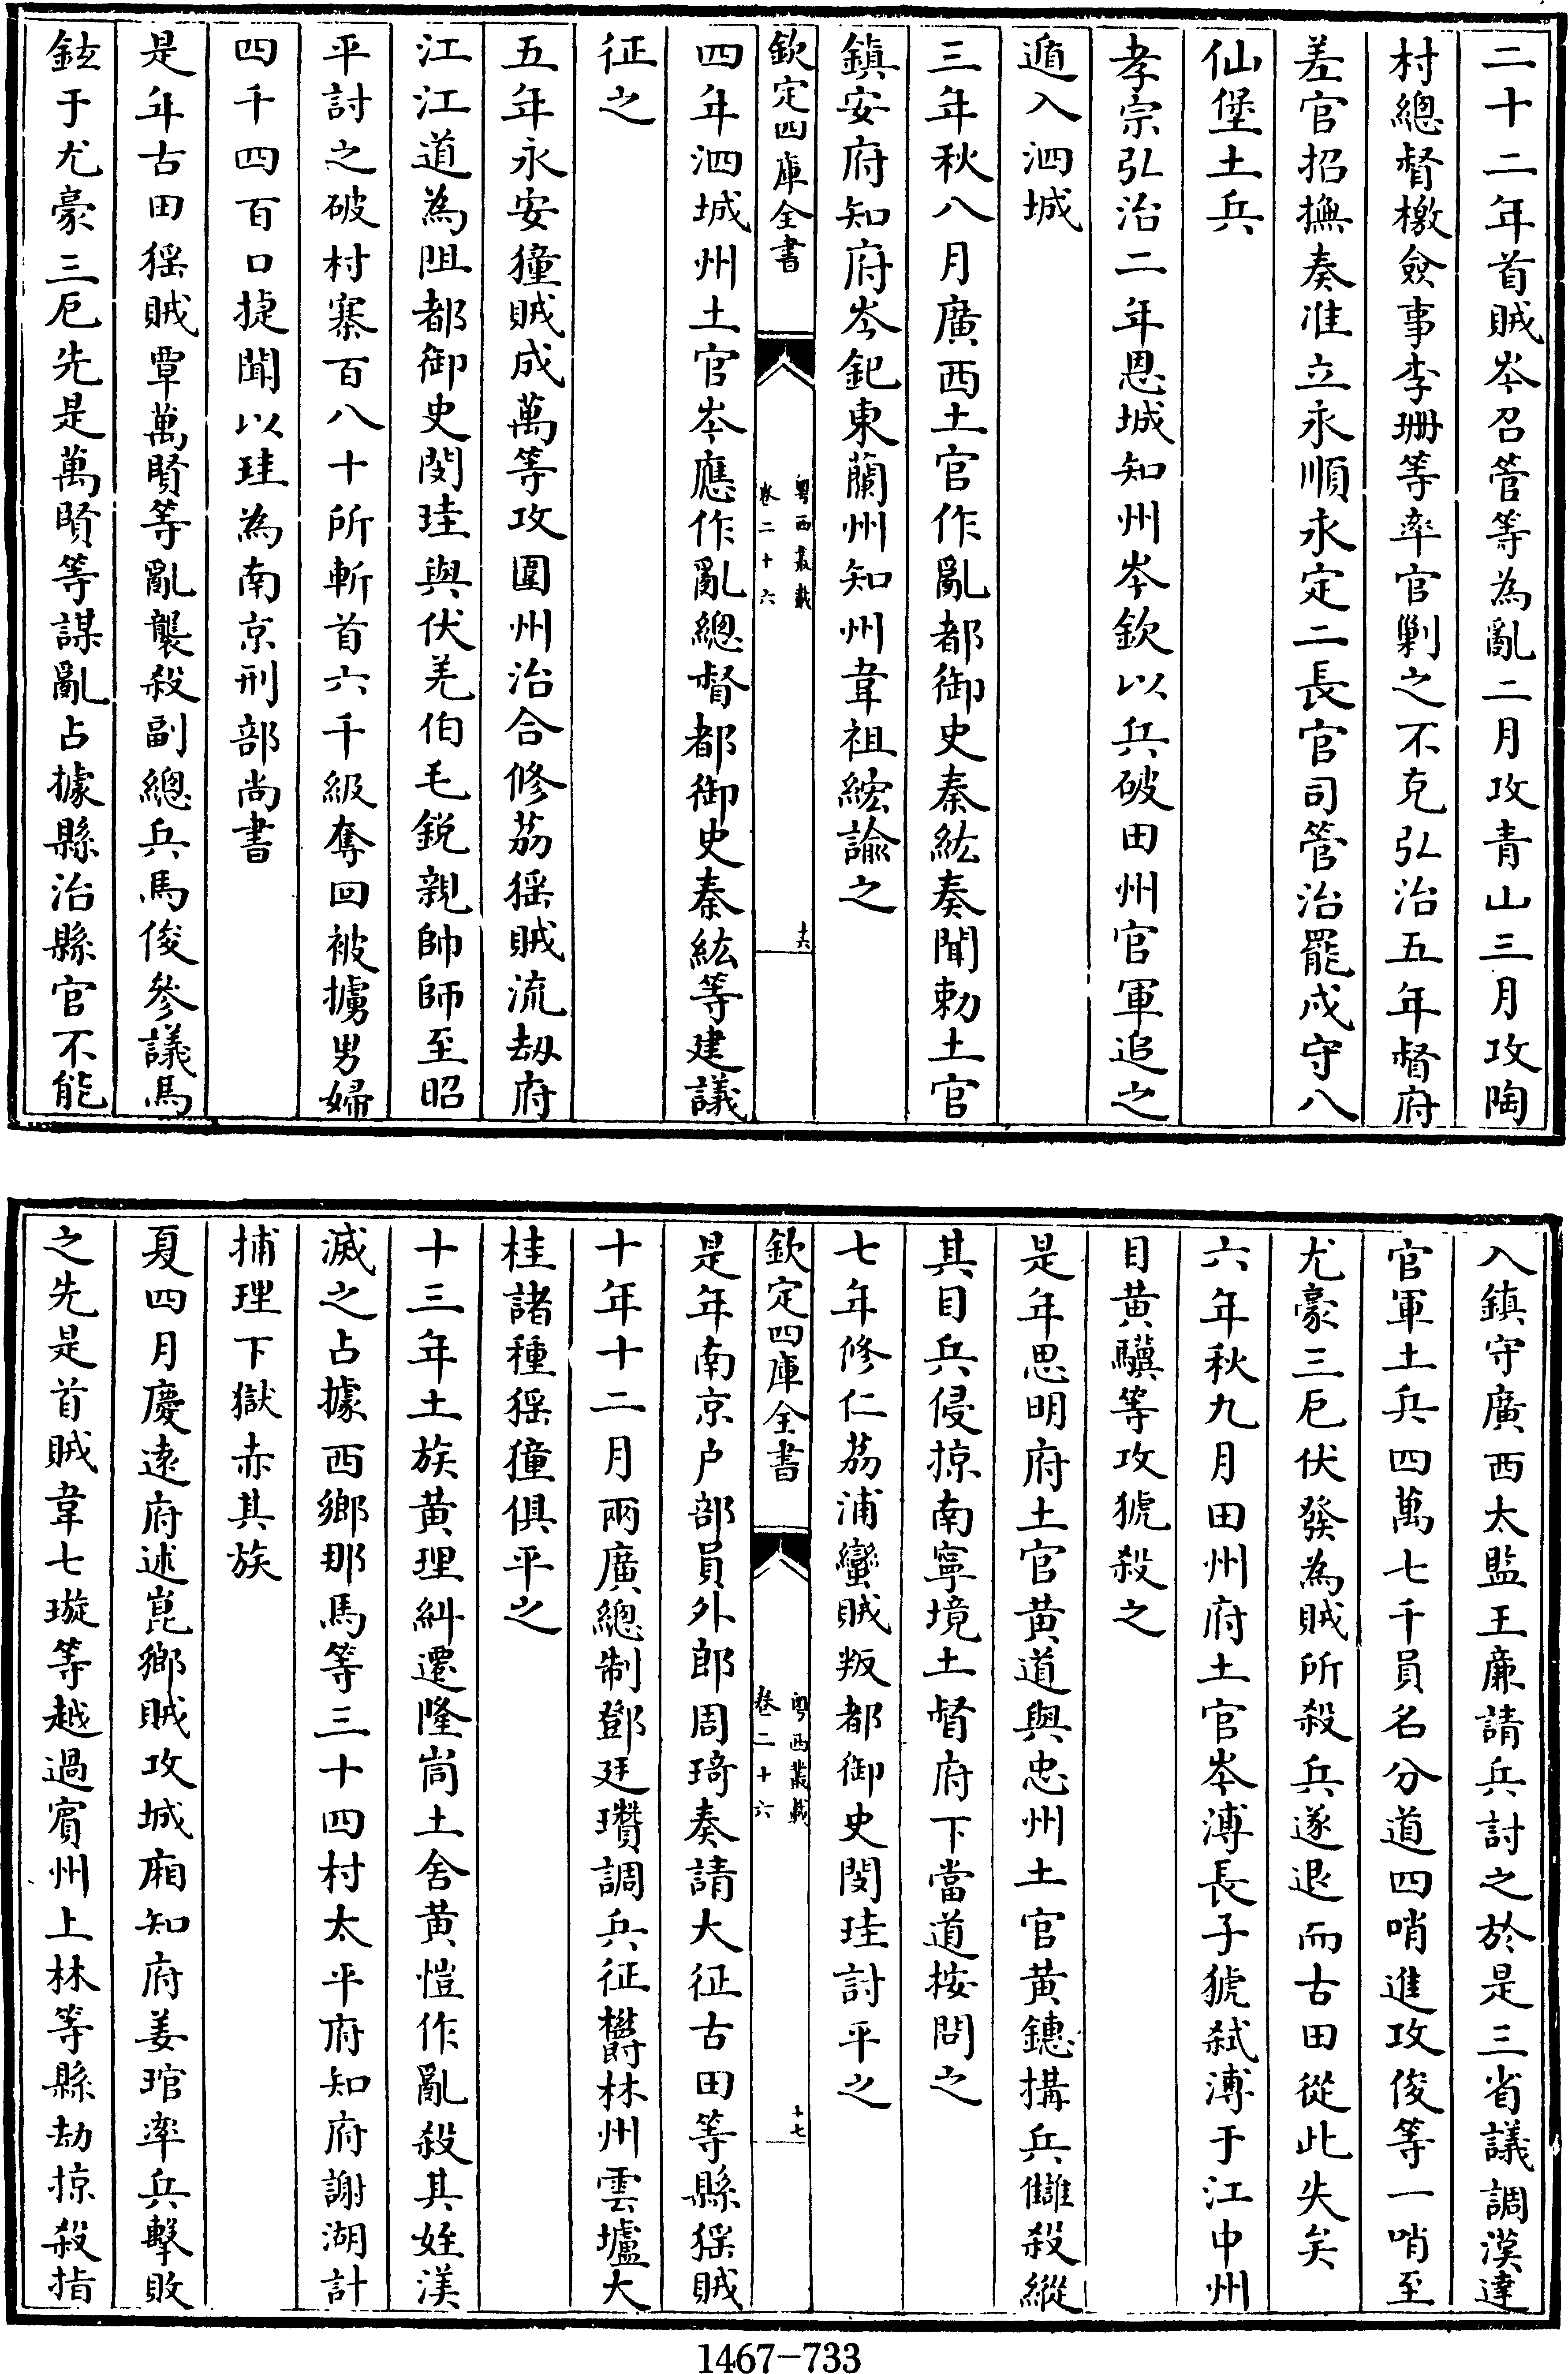 二十二年首賊岑召管等為亂二月攻青山三月攻陶
村總督檄僉事李珊等率官剿之不克弘治五年督府
差官招撫奏准立永順永定二長官司管治罷戍守八
仙堡土兵
孝宗弘治二年恩城知州岑欽以兵破田州官軍追之
遁入泗城
三年秋八月廣西土官作亂都御史秦紘奏聞勅土官
鎮安府知府岑鈀東蘭州知州韋祖綋諭之
欽定四庫全書
粤西叢載
卷二十六
十六
四年泗城州土官岑應作亂總督都御史秦紘等建議
征之
五年永安獞賊成萬等攻圍州治合修荔猺賊流刼府
江江道為阻都御史閔珪與伏羌伯毛銳親帥師至昭
平討之破村寨百八十所斬首六千級奪回被擄男婦
四千四百口捷聞以珪為南京刑部尚書
是年古田猺賊覃萬賢等亂襲殺副總兵馬俊參議馬
鉉于尤豪三厄先是萬賢等謀亂占據縣治縣官不能
入鎮守廣西太監王㢘請兵討之於是三省議調漢達
官軍土兵四萬七千員名分道四哨進攻俊等一哨至
尤豪三厄伏發為賊所殺兵遂退而古田從此失矣
六年秋九月田州府土官岑溥長子猇弒溥于江中州
目黄驥等攻猇殺之
是年思明府土官黄道與忠州土官黄鏸搆兵讎殺縱
其目兵侵掠南寧境土督府下當道按問之
七年修仁荔浦蠻賊叛都御史閔珪討平之
欽定四庫全書
粤西叢載
卷二十六
十七
是年南京户部員外郎周琦奏請大征古田等縣猺賊
十年十二月兩廣總制鄧廷瓚調兵征欝林州雲壚大
桂諸種猺獞俱平之
十三年土族黄理糾遷隆峝土舍黄愷作亂殺其姪渼
滅之占據西鄉那馬等三十四村太平府知府謝湖計
捕理下獄赤其族
夏四月慶遠府述崑鄉賊攻城厢知府姜琯率兵擊敗
之先是首賊韋七璇等越過賔州上林等縣劫掠殺指
1467-733